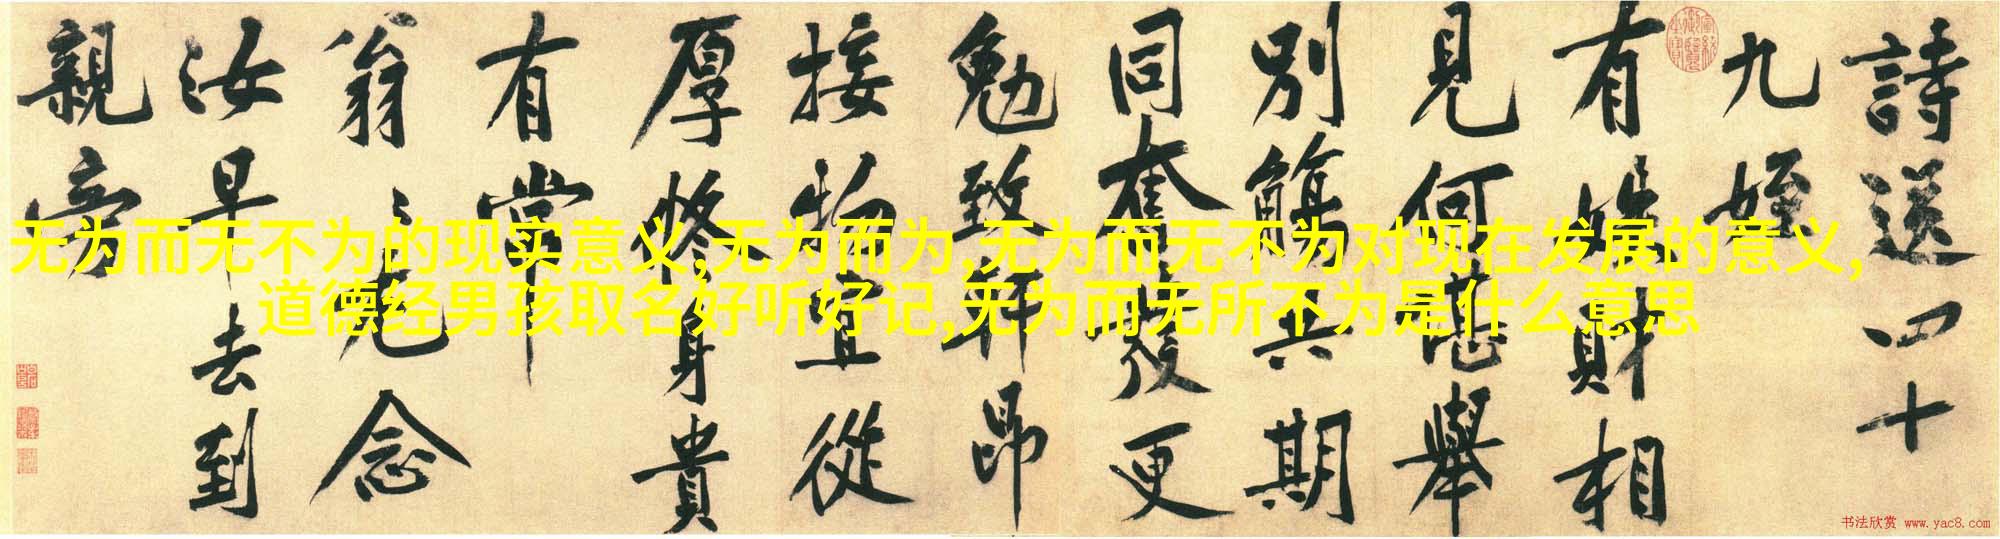 詩送四十
九姪
有財相
見何堪舉
別觴共期
同奮發更
勉致軒昂
接物宜從
厚修身貴
有常
翁〻老念
汝早去到
親旁
无为而无不为的现实意义,无为而为,无为而无不为对现在发展的意义,
道德经男孩取名好听好记,无为而无所不为是什么意思
书法欣赏 www.yac8.com